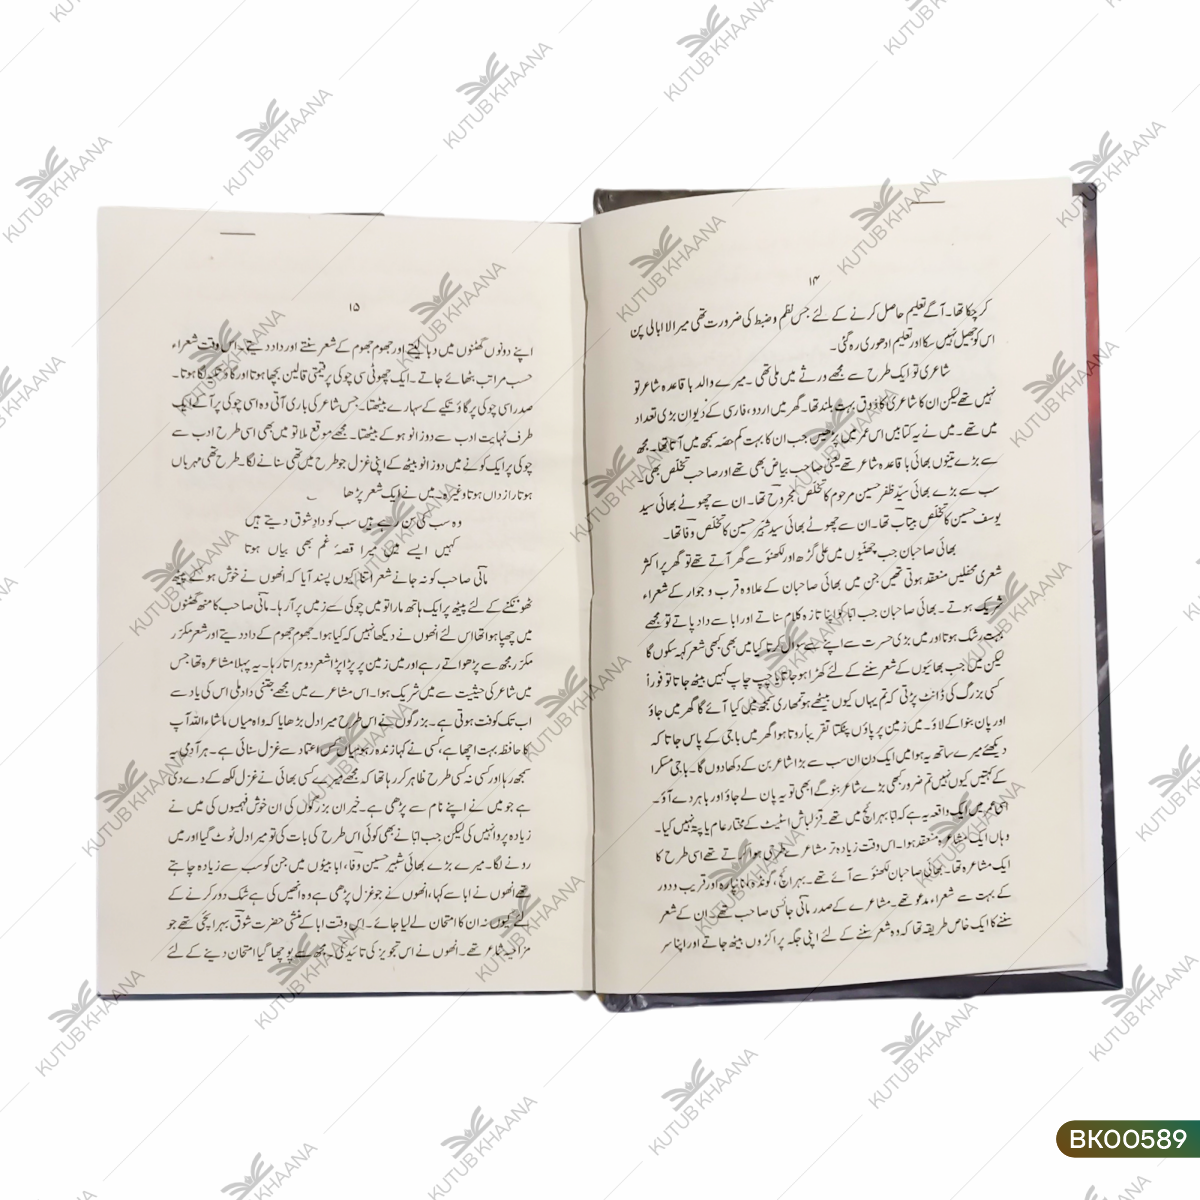 ۱۴
کر چکا تھا۔ آگے تعلیم حاصل کرنے کے لئے جس نظم و ضبط کی ضرورت تھی میرا لا ابالی پن
اس کو جھیل نہیں سکا اور تعلیم ادھوری رہ گئی۔
شاعری تو ایک طرح سے مجھے ورثے میں ملی تھی۔ میرے والد با قاعدہ شاعر تو
نہیں تھے لیکن ان کا شاعری کا ذوق بہت بلند تھا۔ گھر میں اردو، فارسی کے دیوان بڑی تعداد
میں تھے۔ میں نے یہ کتابیں اس عمر میں پڑھیں جب ان کا بہت کم حصّہ سمجھ میں آتا تھا۔ مجھ
سے بڑے تینوں بھائی با قاعدہ شاعر تھے یعنی صاحب بیاض بھی تھے اور صاحب تخلّص بھی۔
سب سے بڑے بھائی سیّد ظفر حسین مرحوم کا تخلّص مجروح تھا۔ ان سے چھوٹے بھائی سید
یوسف حسین کا تخلّص بیتاب تھا۔ ان سے چھوٹے بھائی سید شبّیر حسین کا تخلّص وفا تھا۔
بھائی صاحبان جب چھٹیوں میں علی گڑھ اور لکھنؤ سے گھر آتے تھے تو گھر پر اکثر
شعری محفلیں منعقد ہوتی تھیں جن میں بھائی صاحبان کے علاوہ قرب و جوار کے شعراء
شریک ہوتے۔ بھائی صاحبان جب ابّا کو اپنا تازہ کلام سناتے اور ابا سے داد پاتے تو مجھے
بہت رشک ہوتا اور میں بڑی حسرت سے اپنے سے سوال کرتا کیا میں بھی کبھی شعر کہہ سکوں گا
لیکن میں جب بھائیوں کے شعر سننے کے لئے کھڑا ہو جاتا یا چپ چاپ کہیں بیٹھ جاتا تو فوراً
کسی بزرگ کی ڈانٹ پڑتی کہ تم یہاں کیوں بیٹھے ہو تمہاری سمجھ میں کیا آئے گا گھر میں جاؤ
اور پان بنوا کے لاؤ۔ میں زمین پر پاؤں پٹکتا تقریباً روتا ہوا گھر میں باجی کے پاس جاتا کہ
دیکھئے میرے ساتھ یہ ہوا میں ایک دن ان سب سے بڑا شاعر بن کے دکھا دوں گا۔ باجی مسکرا
کے کہتیں کیوں نہیں تم ضرور کبھی بڑے شاعر بنو گے ابھی تو یہ پان لے جاؤ اور باہر دے آؤ۔
اسی عمر میں ایک واقعہ یہ ہے کہ ابّا بہرائچ میں تھے۔ قزلباش اسٹیٹ کے مختار عام یا پتہ نہیں کیا۔
وہاں ایک مشاعرہ منعقد ہوا۔ اس وقت زیادہ تر مشاعرے طرحی ہوا کرتے تھے اسی طرح کا
ایک مشاعرہ تھا۔ بھائی صاحبان لکھنؤ سے آئے تھے۔ بہرائچ، گونڈہ، نانپارہ اور قریب و دور
کے بہت سے شعراء مدعو تھے۔ مشاعرے کے صدر مانی جائسی صاحب تھے۔ ان کے شعر
سننے کا ایک خاص طریقہ تھا کہ وہ شعر سننے کے لئے اپنی جگہ پر اکڑوں بیٹھ جاتے اور اپنا سر
۱۵
اپنے دونوں گھٹنوں میں دبا لیتے اور جھوم جھوم کے شعر سنتے اور داد دیتے۔ اس وقت شعراء
حسب مراتب بٹھائے جاتے۔ ایک چھوٹی سی چوکی پر قیمتی قالین بچھا ہوتا اور گاؤ تکیہ لگا ہوتا۔
صدر اسی چوکی پر گاؤ تکیے کے سہارے بیٹھتا۔ جس شاعر کی باری آتی وہ اسی چوکی پر آ کے ایک
طرف نہایت ادب سے دو زانو ہو کے بیٹھتا۔ مجھے موقع ملا تو میں بھی اسی طرح ادب سے
چوکی پر ایک کونے میں دو زانو بیٹھ کے اپنی غزل جو طرح میں تھی سنانے لگا۔ طرح تھی مہرباں
ہوتا راز داں ہوتا وغیرہ۔ میں نے ایک شعر پڑھا
وہ سب کی سن رہے ہیں سب کو دادِ شوق دیتے ہیں
کہیں ایسے میں میرا قصۂ غم بھی بیاں ہوتا
مانی صاحب کو نہ جانے شعر اتنا کیوں پسند آیا کہ انھوں نے خوش ہو کے پیٹھ
ٹھونکنے کے لئے پیٹھ پر ایک ہاتھ مارا تو میں چوکی سے زمیں پر آ رہا۔ مانی صاحب کا منہ گھٹنوں
میں چھپا ہوا تھا اس لئے انھوں نے دیکھا نہیں کہ کیا ہوا۔ جھوم جھوم کے داد دیتے اور شعر مکرّر
مکرّر مجھ سے پڑھواتے رہے اور میں زمین پر پڑا پڑا شعر دوہراتا رہا۔ یہ پہلا مشاعرہ تھا جس
میں شاعر کی حیثیت سے میں شریک ہوا۔ اس مشاعرے میں مجھے جتنی داد ملی اس کی یاد سے
اب تک کوفت ہوتی ہے۔ بزرگوں نے اس طرح میرا دل بڑھایا کہ واہ میاں ماشاء اللہ آپ
کا حافظہ بہت اچھا ہے، کسی نے کہا زندہ رہو میاں کس اعتماد سے غزل سنائی ہے۔ ہر آدمی یہ
سمجھ رہا اور کسی نہ کسی طرح ظاہر کر رہا تھا کہ مجھے میرے کسی بھائی نے غزل لکھ کے دے دی
ہے جو میں نے اپنے نام سے پڑھی ہے۔ خیر ان بزرگوں کی ان خوش فہمیوں کی میں نے
زیادہ پروا نہیں کی لیکن جب ابّا نے بھی کوئی اس طرح کی بات کی تو میرا دل ٹوٹ گیا اور میں
رونے لگا۔ میرے بڑے بھائی شبیر حسین وفا، ابا بیٹوں میں جن کو سب سے زیادہ چاہتے
تھے انھوں نے ابا سے کہا، انھوں نے جو غزل پڑھی ہے وہ انھیں کی ہے شک دور کرنے کے
لئے کیوں نہ ان کا امتحان لے لیا جائے۔ اس وقت ابا کے منشی حضرت شوق بہرائچی تھے جو
مزاحیہ شاعر تھے۔ انھوں نے اس تجویز کی تائید کی۔ مجھ سے پوچھا گیا امتحان دینے کے لئے
KUTUB KHAANA
BK00589